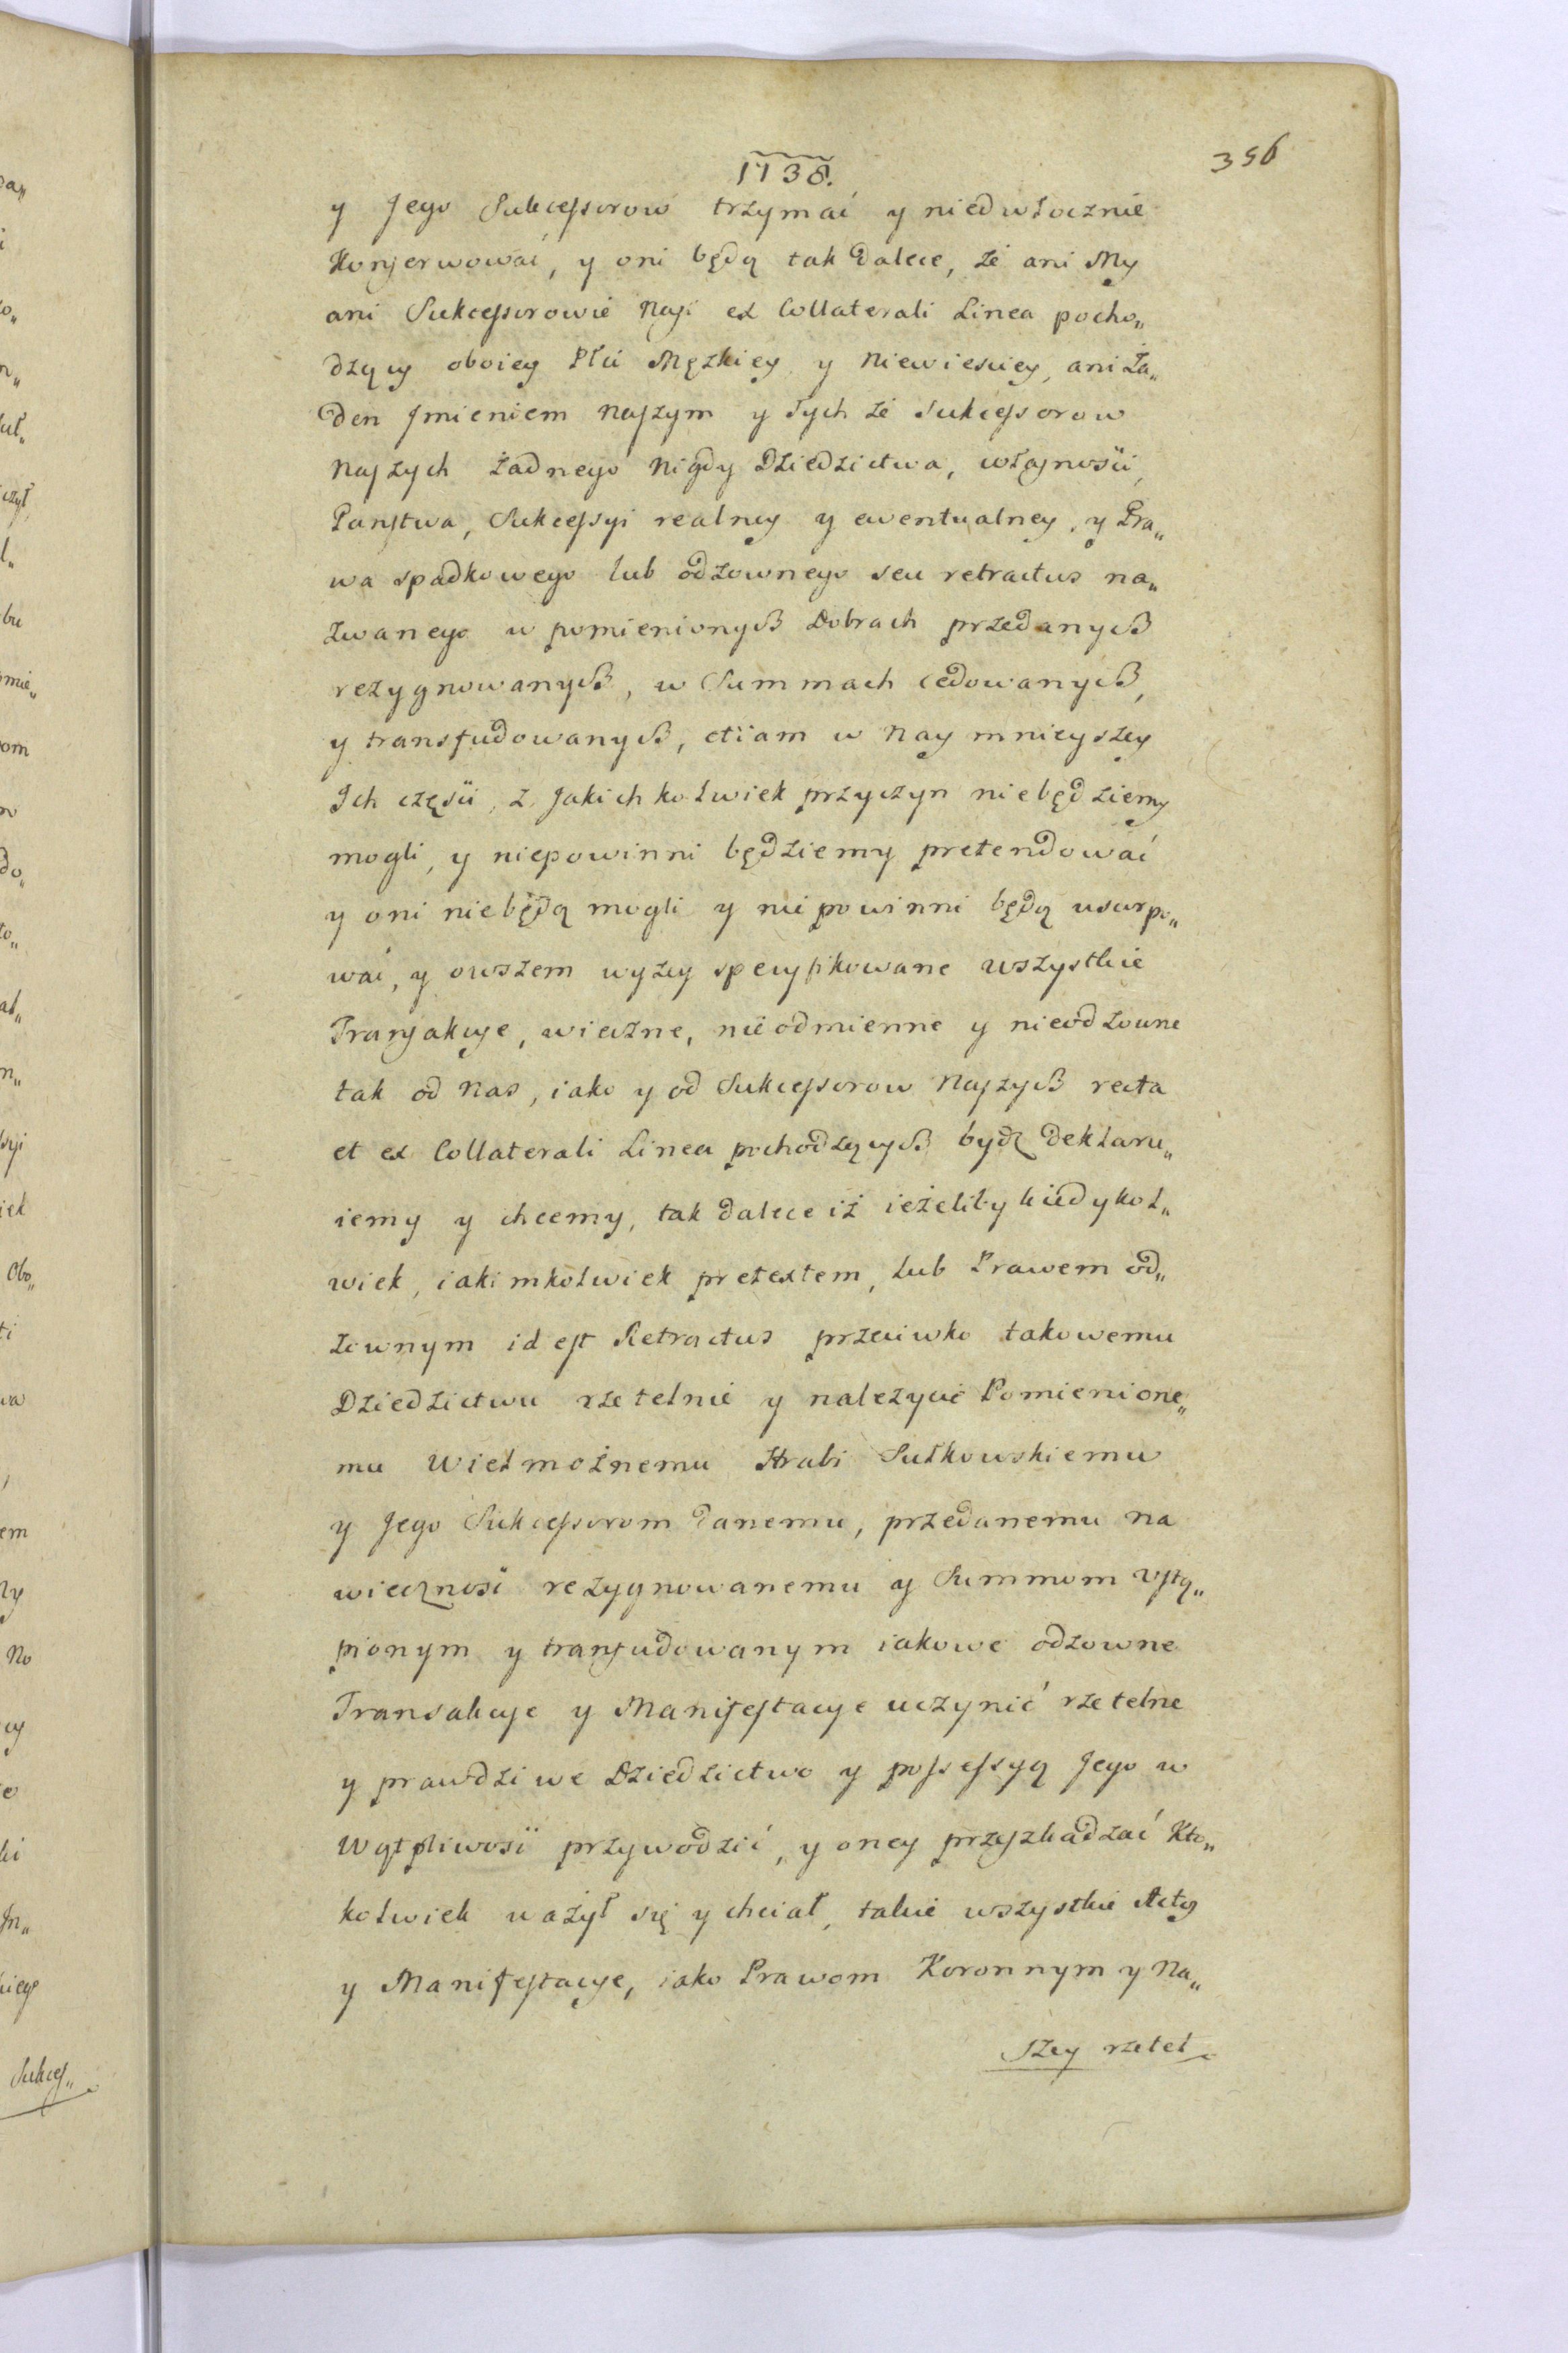 356
1738.
y Jego Sukcessorow trzymać y niedwłocznie
Konserwować, y oni będą tak dalece, że ani My
ani Sukcessorowie Nasi ex Collaterali Linea pocho„
dzący oboiey Płci Męzkiey y Niewiesciey, ani ża„
den Jmieniem Naszym y tych że Sukcessorow
Naszych żadnego Nigdy Dziedzictwa, własności,
Państwa, Sukcessyi realney y ewentualney, y Pra„
wa spadkowego lub odzownego seu retractus na„
zwanego w pomienionych Dobrach przedanych
rezygnowanych, w Summach cedowanych,
y transfudowanych, etiam w Nay mnieyszey
Ich części, z Jakich kolwiek przyczyn niebędziemy
mogli, y niepowinni będziemy pretendować
y oni niebędą mogli y nie powinni będą usurpo„
wać, y owszem wyżey specyfikowane wszystkie
Transakcye, wieczne, nieodmienne y nieodzowne
tak od Nas, iako y od Sukcessorow Naszych recta
et ex Collaterali Linea pochodzących bydź deklaru„
iemy y chcemy, tak dalece iż ieżeliby kiedykol„
wiek, iakimkolwiek pretextem, lub Prawem od„
zownym id est Retractus przeciwko takowemu
Dziedzictwu rzetelnie y należycie Pomienione„
mu Wielmożnemu Hrabi Sułkowskiemu
y Jego Sukcessorom danemu, przedanemu na
wieczność rezygnowanemu y Summom Ustą„
pionym y transfudowanym iakowe odzowne
Transakcye y Manifestacye uczynić rzetelne
y prawdziwe Dziedzictwo y possessyą Jego w
Wątpliwość przywodzić, y oney przeszkadzać Kto„
kolwiek ważył się y chciał, takie wszystkie Acta
y Manifestacye, iako Prawom Koronnym y Na„
szey rzetel